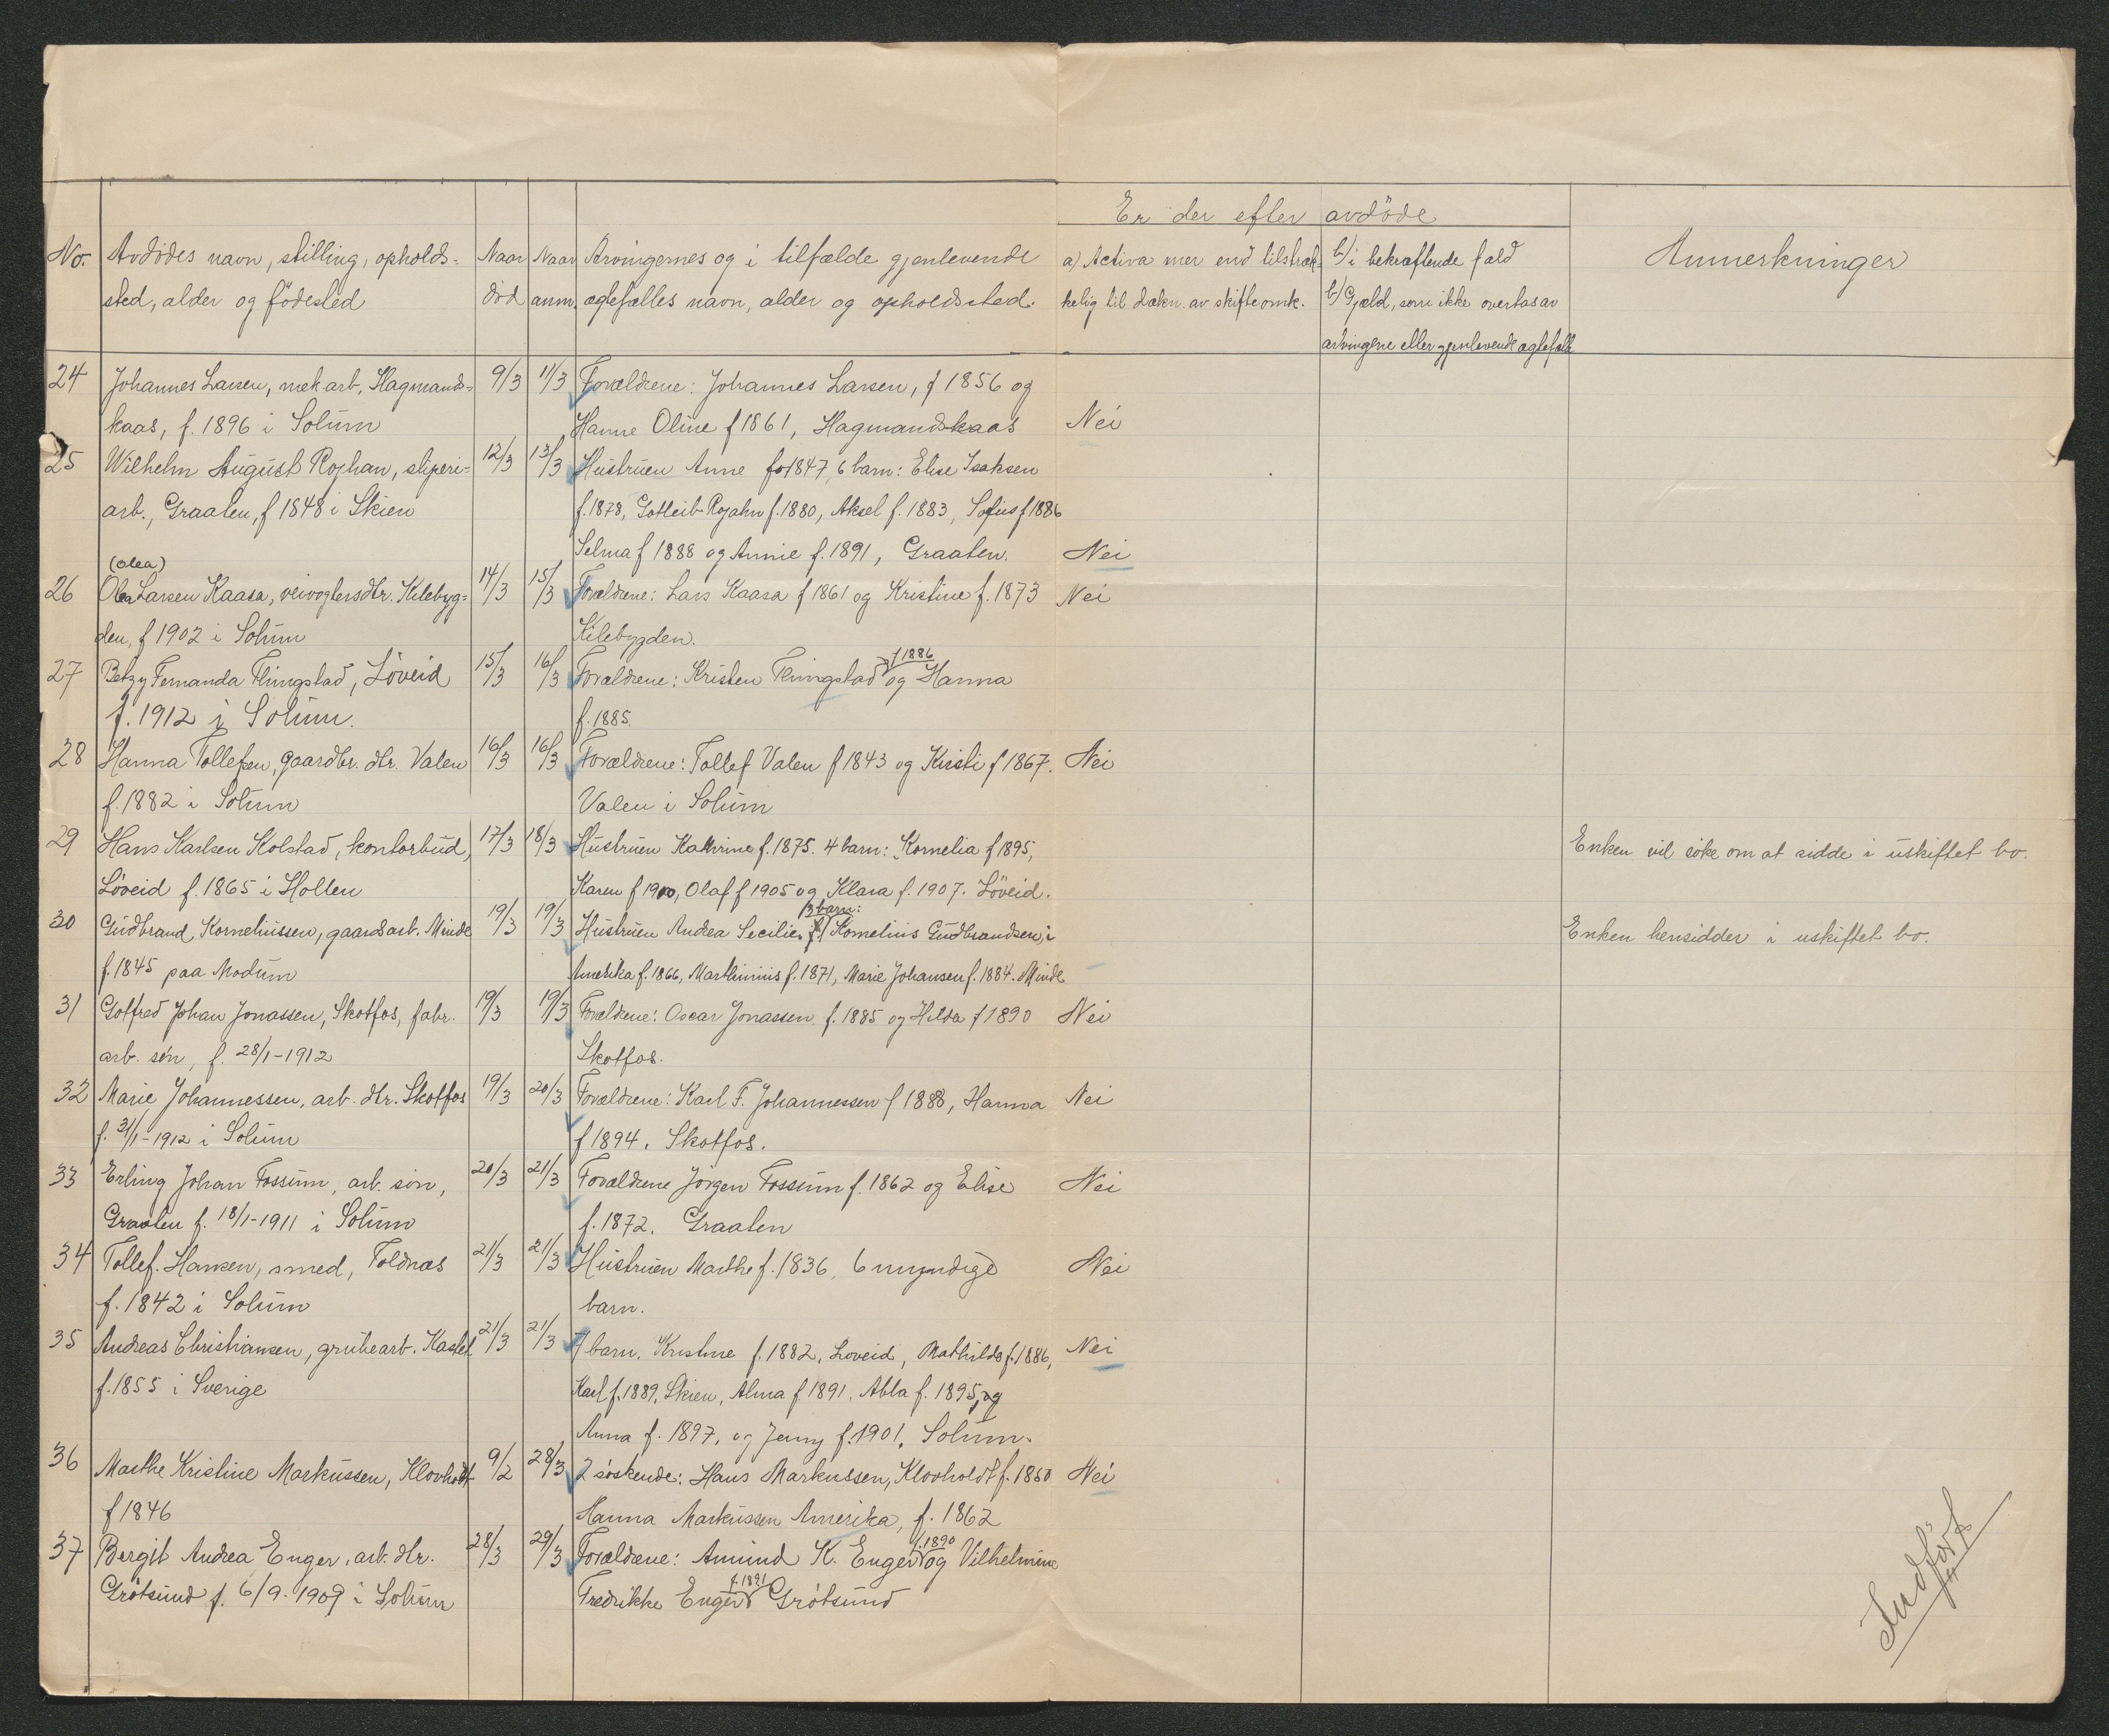 Er der efter avdöde
No. Avdödes navn, stilling, opholds- Naar Naar Arvingernes og i tilfælde gjenlevende a) Activa mer end tilstræk- b/ i bekræftende fald Anmerkninger
sted, alder og födested död anm. ægtefælles navn, alder og opholdssted. kelig til dækn. av skifteomk. b/ Gjæld, som ikke overtas av
arvingene eller gjenlevende ægtefælle
24 Johannes Larsen, mek arb, Hagmands- 9/3 11/3 Forældrene: Johannes Larsen, f 1856 og
kaas, f. 1896 i Solum Hanne Oline f 1861, Hagmandskaas Nei
25 Wilhelm August Rojhan, sliperi- 12/3 13/3 Hustruen Anne fo 1847, 6 barn: Elise Isaksen
arb., Graaten, f 1848 i Skien f. 1878, Gotleib Rojahn f. 1880, Aksel f. 1883, Sofus f 1886
Selma f 1888 og Annie f. 1891, Graaten. Nei
(Olea)
26 Olea Larsen Kaasa, veivogtersdtr. Kilebyg- 14/3 15/3 Forældrene: Lars Kaasa f 1861 og Kristine f. 1873 Nei
den, f 1902 i Solum Kilebygden.
f 1886
27 Betzy Fernanda Flingstad, Löveid 15/3 16/3 Forældrene: Kristen Flingstad og Hanna
f. 1912 i Solum. f. 1885.
28 Hanna Tollefsen, gaardbr. dtr. Valen 16/3 16/3 Forældrene: Tollef Valen f 1843 og Kirsti f 1867. Nei
f. 1882 i Solum Valen i Solum
29 Hans Karlsen Kolstad, kontorbud, 17/3 18/3 Hustruen Kathrine f. 1875. 4 barn: Kornelia f 1895, Enken vil söke om at sidde i uskiftet bo.
Löveid f. 1865 i Hollen Karen f 1900, Olaf f 1905 og Klara f. 1907. Löveid.
3 barn:
30 Gudbrand Korneliussen, gaardsarb. Minde 19/3 19/3 Hustruen Andrea Secilie. Kornelius Gudbrandsen, i Enken hensidder i uskiftet bo.
f. 1845 paa Modum Amerika f. 1866, Marthinius f. 1871, Marie Johansen f. 1884. Minde
31 Gotfred Johan Jonassen, Skotfos, fabr. 19/3 19/3 Forældrene: Oscar Jonassen f. 1885 og Hilda f 1890 Nei
arb. sön, f. 28/1-1912 Skotfos.
32 Marie Johannessen, arb. dtr. Skotfos 19/3 20/3 Forældrene: Karl F. Johannessen f 1888, Hanna Nei
f. 31/1-1912 i Solum f 1894. Skotfos.
33 Erling Johan Fossum, arb. sön, 20/3 21/3 Forældrene Jörgen Fossum f. 1862 og Elise Nei
Graaten f. 18/1-1911 i Solum f. 1872. Graaten
34 Tollef. Hansen, smed, Foldnæs 21/3 21/3 Hustruen Marthe f. 1836, 6 myndige Nei
f. 1842 i Solum barn.
35 Andreas Christiansen, grubearb. Kastet 21/3 21/3 7 barn. Kristine f. 1882, Loveid, Mathilde f. 1886, Nei
f. 1855 i Sverige Karl f. 1889, Skien, Alma f. 1891, Abla f. 1895, og
Anna f. 1897, og Jenny f. 1901, Solum.
36 Marthe Kristine Markussen, Klovholdt 9/2 28/3 2 söskende: Hans Markussen, Klovholdt f. 1850 Nei
f 1846 Hanna Markussen Amerika, f. 1862
f. 1890
37 Bergit Andrea Enger, arb. dtr. 28/3 29/3 Forældrene: Amund K. Enger og Vilhelmine
f. 1891
Grötsund f. 6/9-1909 i Solum Fredrikke Enger Grötsund
Indført